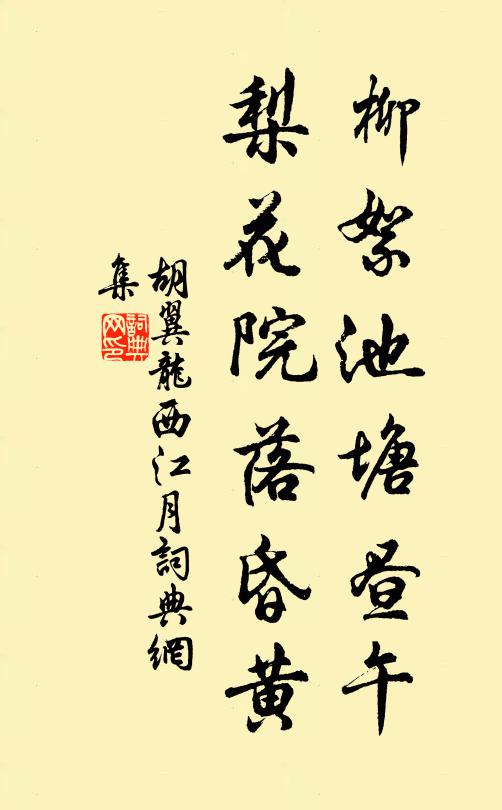 柳絮池塘昼午
梨花院落昏黄
胡翼龍西江月詞典網
集
詞典
网印